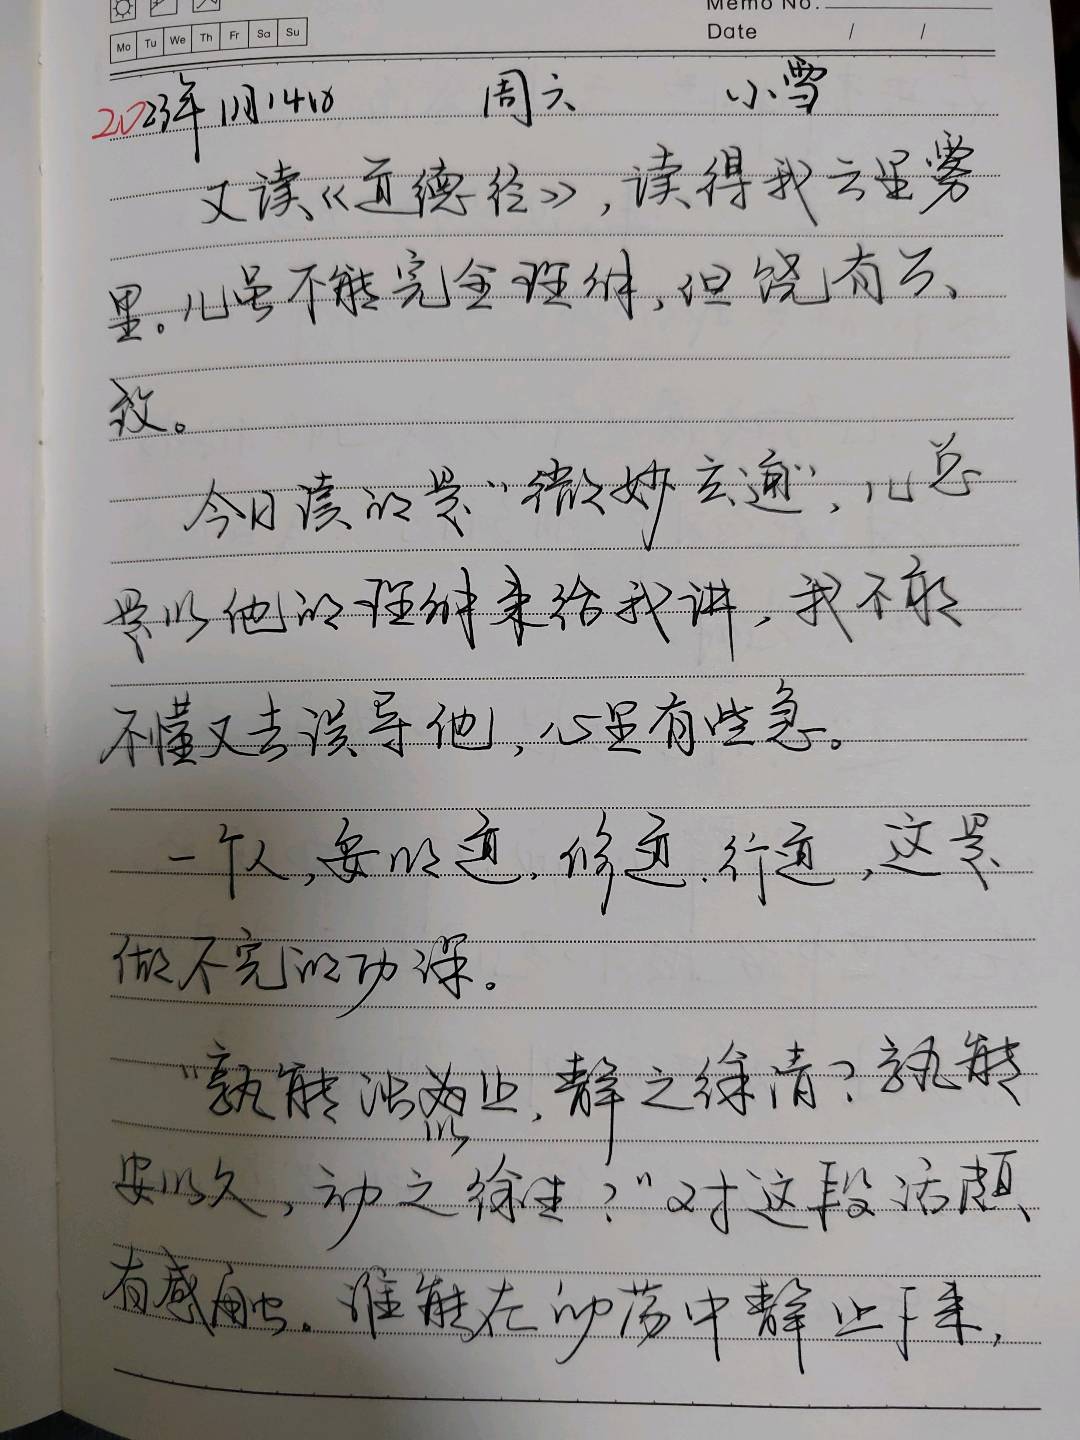 Memo No.
Mo Tu We Th Fr Sa Su
Date / /
2023年11月 周六 小雪
又读《道德经》,读得我云里雾
里。虽不能完全理解,但饶有兴
致。
今日读的是“微妙玄通”,儿总
是以他的理解来给我讲,我不敢
不懂又去误导他,心里有些急。
一个人,要明道,修道,行道,这是
做不完的功课。
“孰能浊以止,静之徐清?孰能
安以久,动之徐生?”对这段话颇
有感触。谁能在动荡中静止下来,